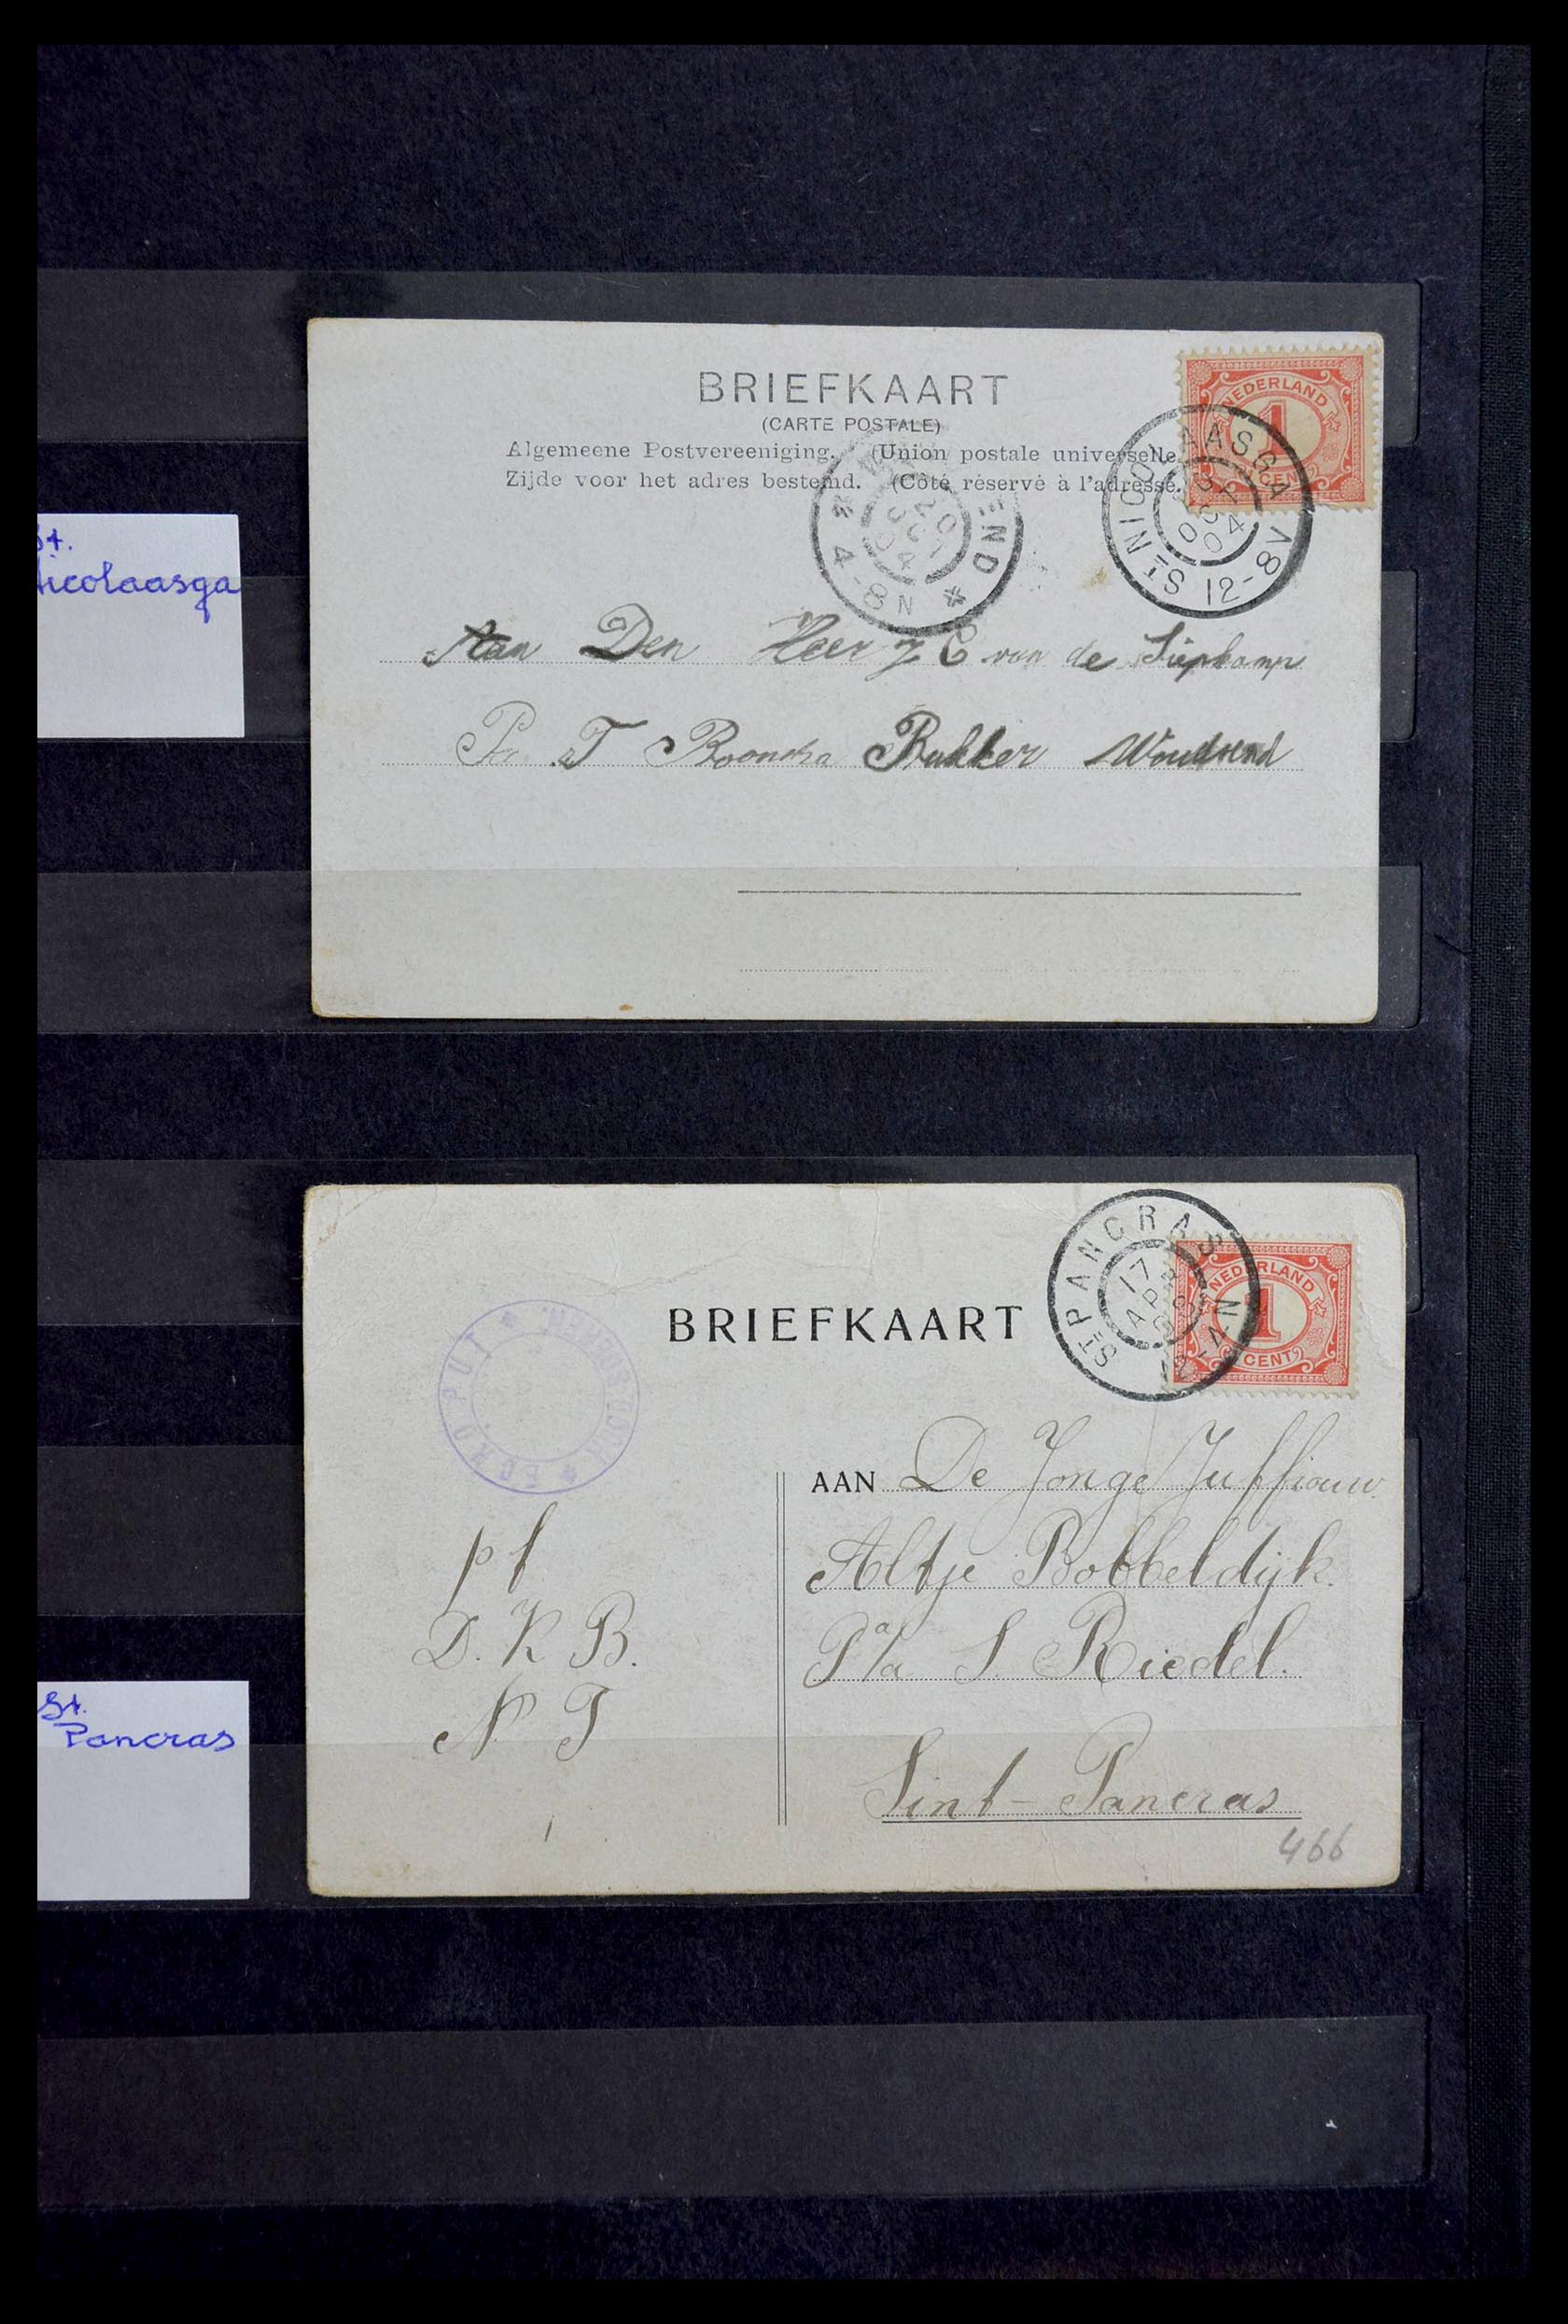 BRIEFKAART
(CARTE POSTALE)
Algemeene Postvereeniging. (Union postale universelle.
Zijde voor het adres bestemd. (Côté réservé à l'adresse.)
NEDERLAND
1
CEN
ST NICOLAASGA
04
12-8V
END
4-8N
St.
Nicolaasga
Aan Den Heer van de
T Bakker Woudsend
BRIEFKAART
ST PANCRAS
17
APR
12-4N
NEDERLAND
1
CENT
AAN De Jonge Juffrouw
Altje Bobbeldijk.
P/a S. Riedel.
Sint-Pancras
466
p f
D. K B.
N T
St.
Pancras